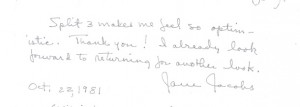 Split 3 makes me feel so optim-
istic. Thank you! I already look
forward to returning for another look.
Jane Jacobs
Oct. 23, 1981